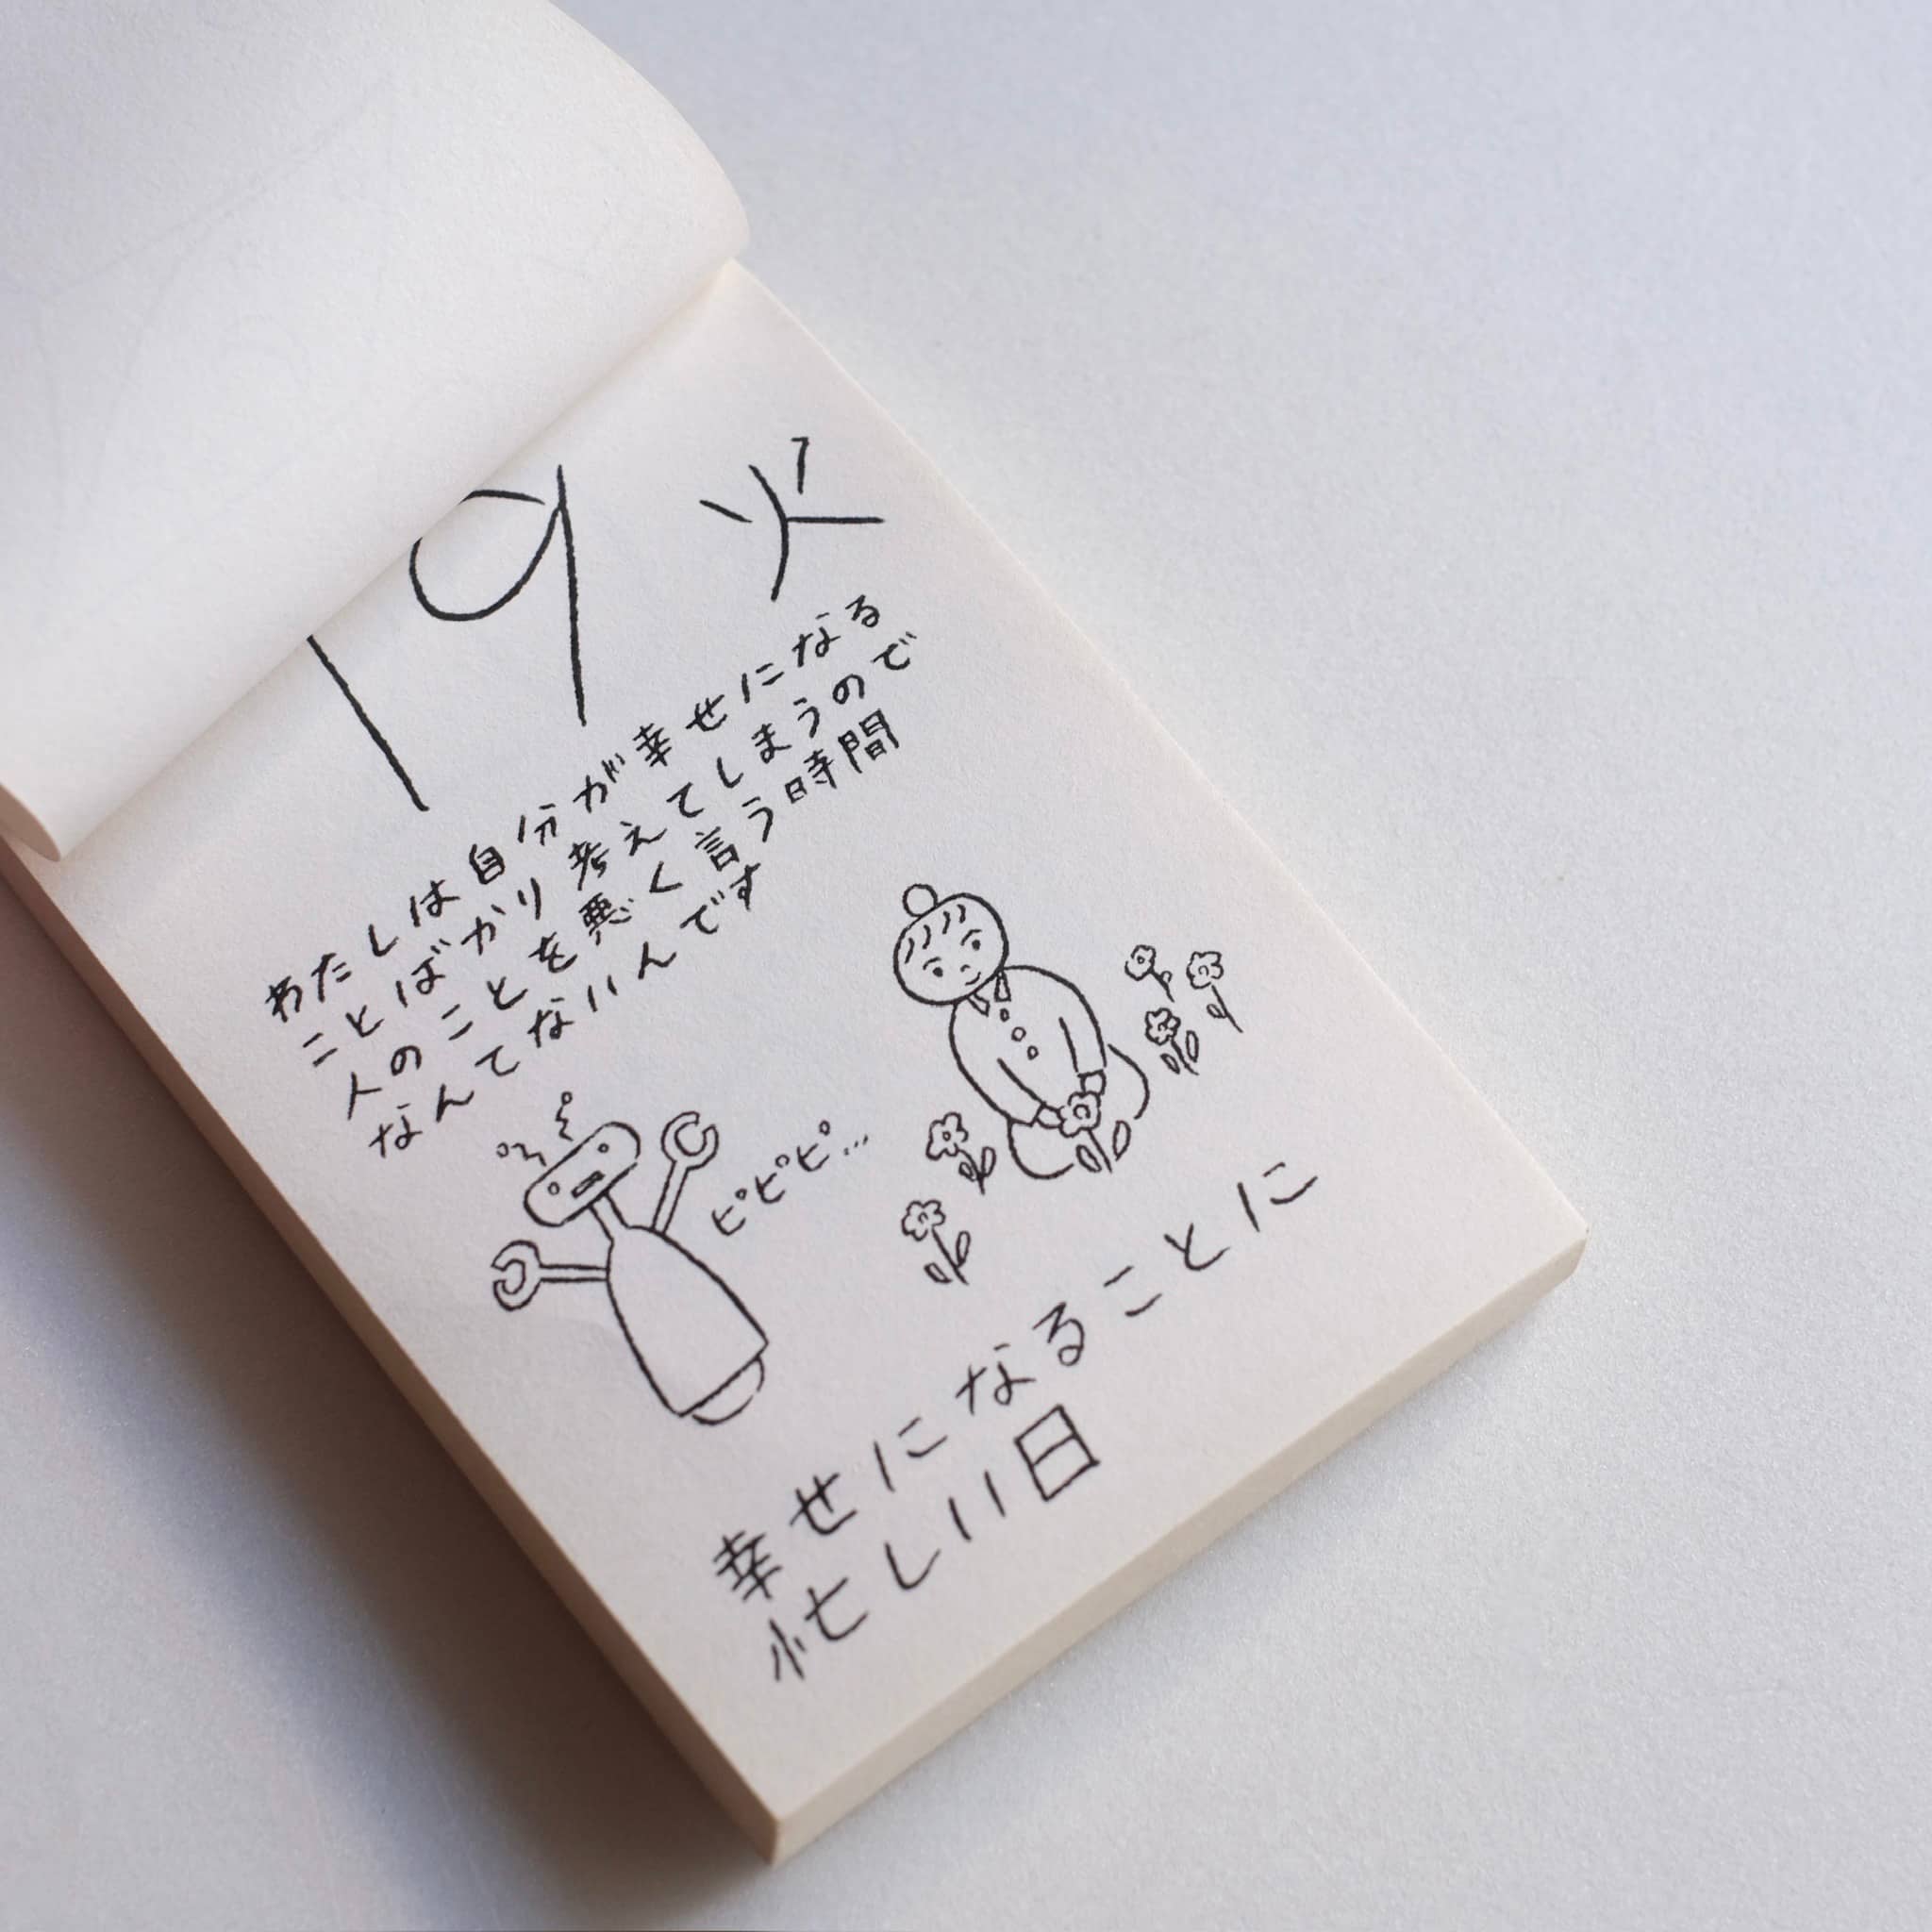 19 火
わたしは自分が幸せになる
ことばかり考えてしまうので
人のことを悪く言う時間
なんてないんです
ピピピ…
幸せになることに
忙しい日